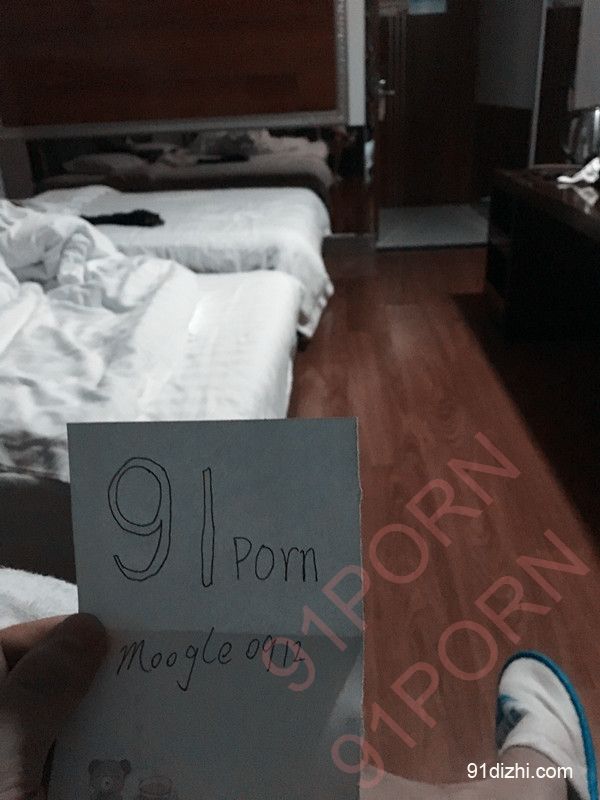 91 Porn
Moogle 0912
91PORN
91PORN
91dizhi.com